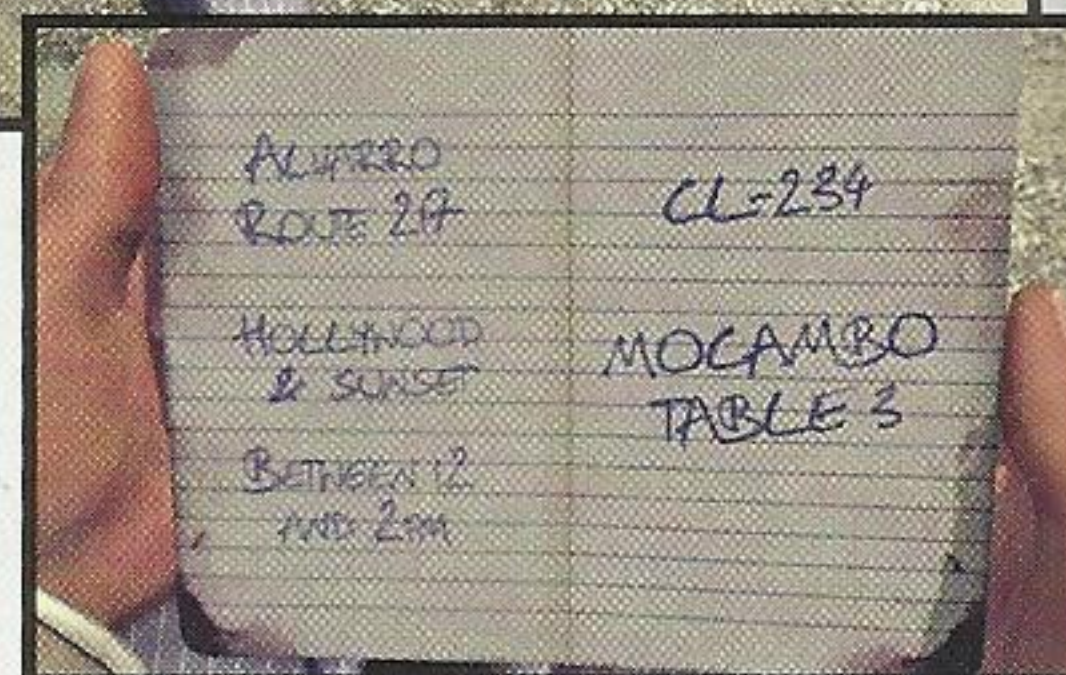 ALVARRO
ROUTE 27
HOLLYWOOD
& SUNSET
BETWEEN 12
AND 2AM
CL-234
MOCAMBO
TABLE 3